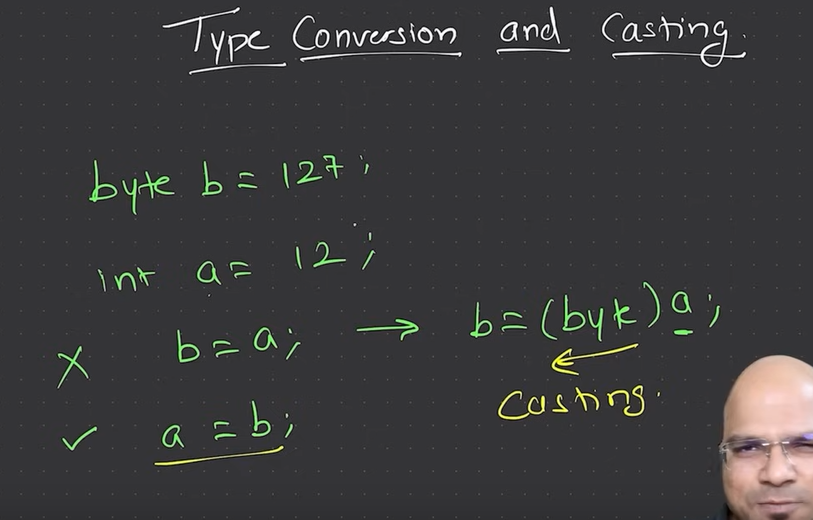 Type Conversion and Casting.
byte b = 127;
int a = 12;
X b = a; → b = (byte) a;
✓ a = b;
Casting.